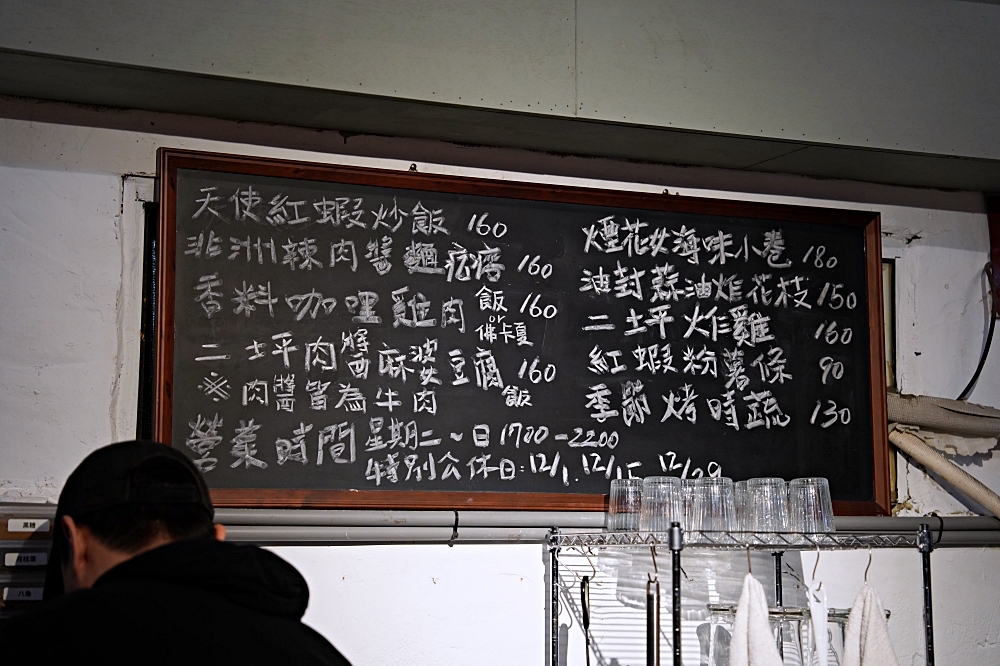 天使紅蝦炒飯 160
非洲辣肉醬麵疙瘩 160
香料咖哩雞肉 飯 or 佛卡夏 160
二土坪肉醬麻婆豆腐飯 160
※肉醬皆為牛肉
營業時間 星期二~日 1700-2200
特別公休日:12/1. 12/15 12/29
煙花女海味小卷 180
油封蒜油炸花枝 150
二土坪炸雞 160
紅蝦粉薯條 90
季節烤時蔬 130
八角